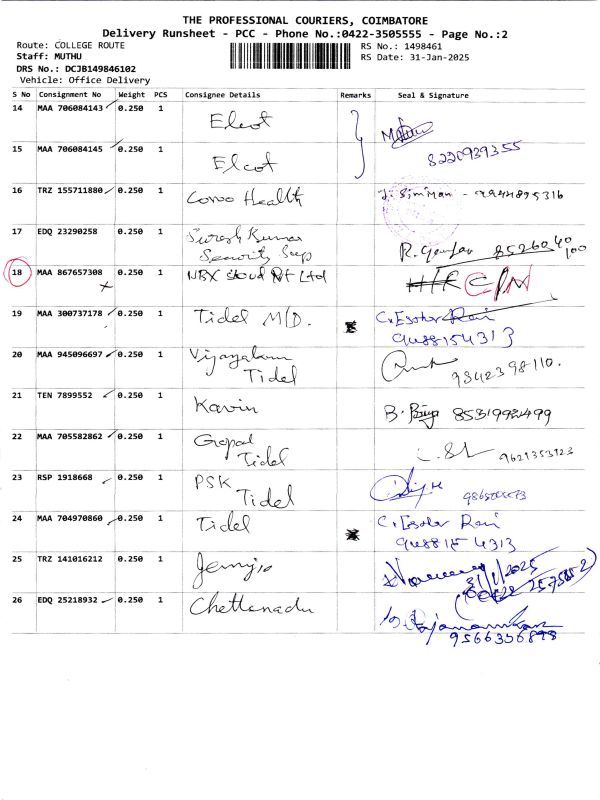 THE PROFESSIONAL COURIERS, COIMBATORE
Delivery Runsheet - PCC - Phone No.:0422-3505555 - Page No.:2
Route: COLLEGE ROUTE
Staff: MUTHU
DRS No.: DCJB149846102
Vehicle: Office Delivery
RS No.: 1498461
RS Date: 31-Jan-2025
S No Consignment No Weight PCS Consignee Details Remarks Seal & Signature
14 MAA 706084143 0.250 1 Elcot
15 MAA 706084145 0.250 1 Elcot 8220939355
16 TRZ 155711880 0.250 1 Health
17 EDQ 23290258 0.250 1 Suresh Kumar
Security
18 MAA 867657308 0.250 1 NBX Pvt Ltd
19 MAA 300737178 0.250 1 Tidel M/D. C. Rani
9488154313
20 MAA 945096697 0.250 1 Tidel 9842398110.
21 TEN 7899552 0.250 1 Kavin B.
22 MAA 705582862 0.250 1 Gopal
Tidel 9621353123
23 RSP 1918668 0.250 1 PSK
Tidel
24 MAA 704970860 0.250 1 Tidel C. Rani
9488154313
25 TRZ 141016212 0.250 1 31/1/2025
26 EDQ 25218932 0.250 1 Chettanadu
9566356898